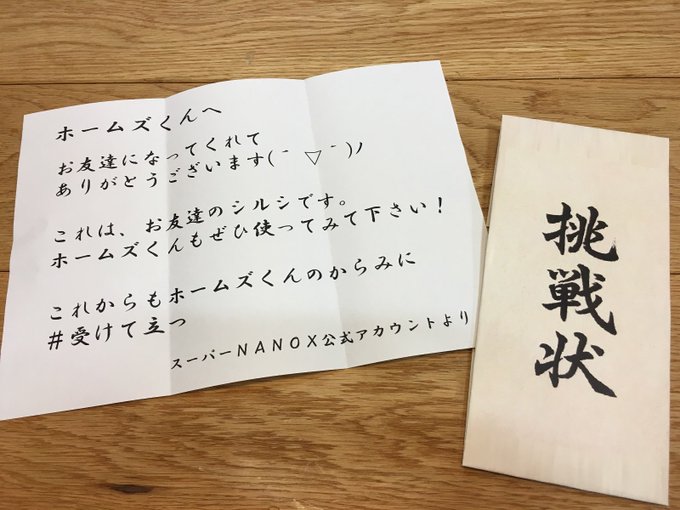 ホームズくんへ
お友達になってくれて
ありがとうございます(＾▽＾)ﾉ
これは、お友達のシルシです。
ホームズくんもぜひ使ってみて下さい！
これからもホームズくんのからみに
＃受けて立つ
スーパーNANOX公式アカウントより
挑戦状